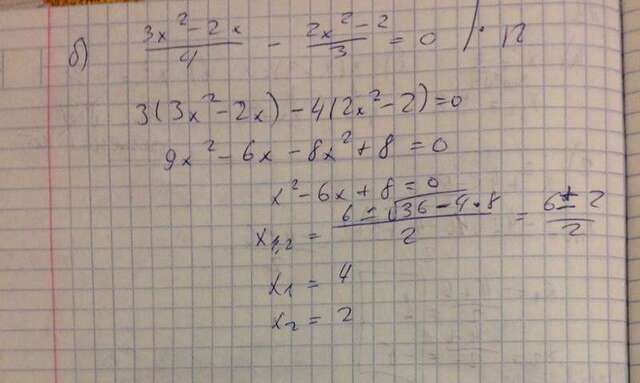 б) (3x² - 2x)/4 - (2x² - 2)/3 = 0 / · 12
3(3x² - 2x) - 4(2x² - 2) = 0
9x² - 6x - 8x² + 8 = 0
x² - 6x + 8 = 0
x₁,₂ = (6 ± √(36 - 4 · 8))/2 = (6 ± 2)/2
x₁ = 4
x₂ = 2